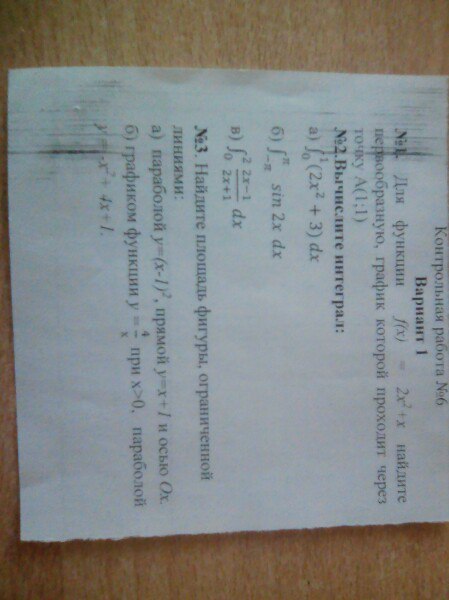 Контрольная работа №6
Вариант 1
№1. Для функции f(x) = 2x²+x найдите
первообразную, график которой проходит через
точку A(1;1)
№2.Вычислите интеграл:
а) ∫₀¹(2x² + 3) dx
б) ∫₋π^π sin 2x dx
в) ∫₀² (2x−1)/(2x+1) dx
№3 Найдите площадь фигуры, ограниченной
линиями:
а) параболой y=(x-1)², прямой y=x+1 и осью Ox.
б) графиком функции y = 4/x при x>0, параболой
y = -x² + 4x+1.